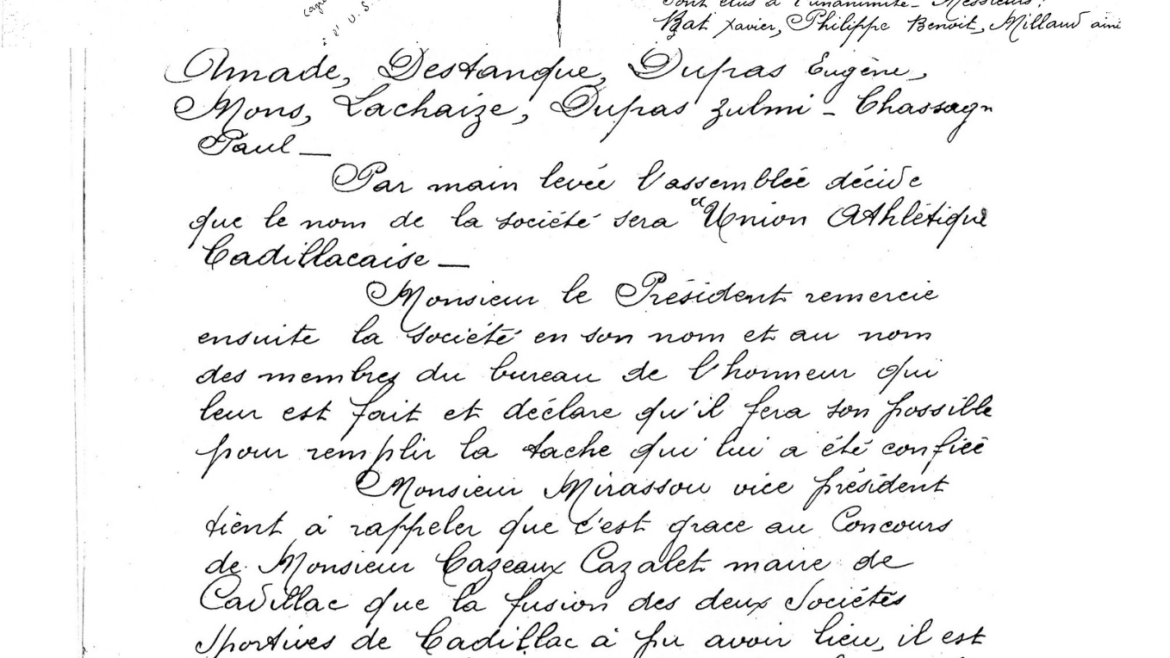 sont élus à l'unanimité - Messieurs:
Bat Xavier, Philippe Benoit, Millaud ainé
Amade, Destanque, Dupras Eugène,
Mons, Lachaize, Dupras Zulmi - Chassagn
Paul —
Par main levée l'assemblée décide
que le nom de la société sera "Union Athlétique
Cadillacaise —
Monsieur le Président remercie
ensuite la société en son nom et au nom
des membres du bureau de l'honneur qui
leur est fait et déclare qu'il fera son possible
pour remplir la tache qui lui a été confiée
Monsieur Mirassou vice président
tient à rappeler que c'est grace au Concours
de Monsieur Cazeaux Cazalet maire de
Cadillac que la fusion des deux Sociétés
Sportives de Cadillac à pu avoir lieu, il est